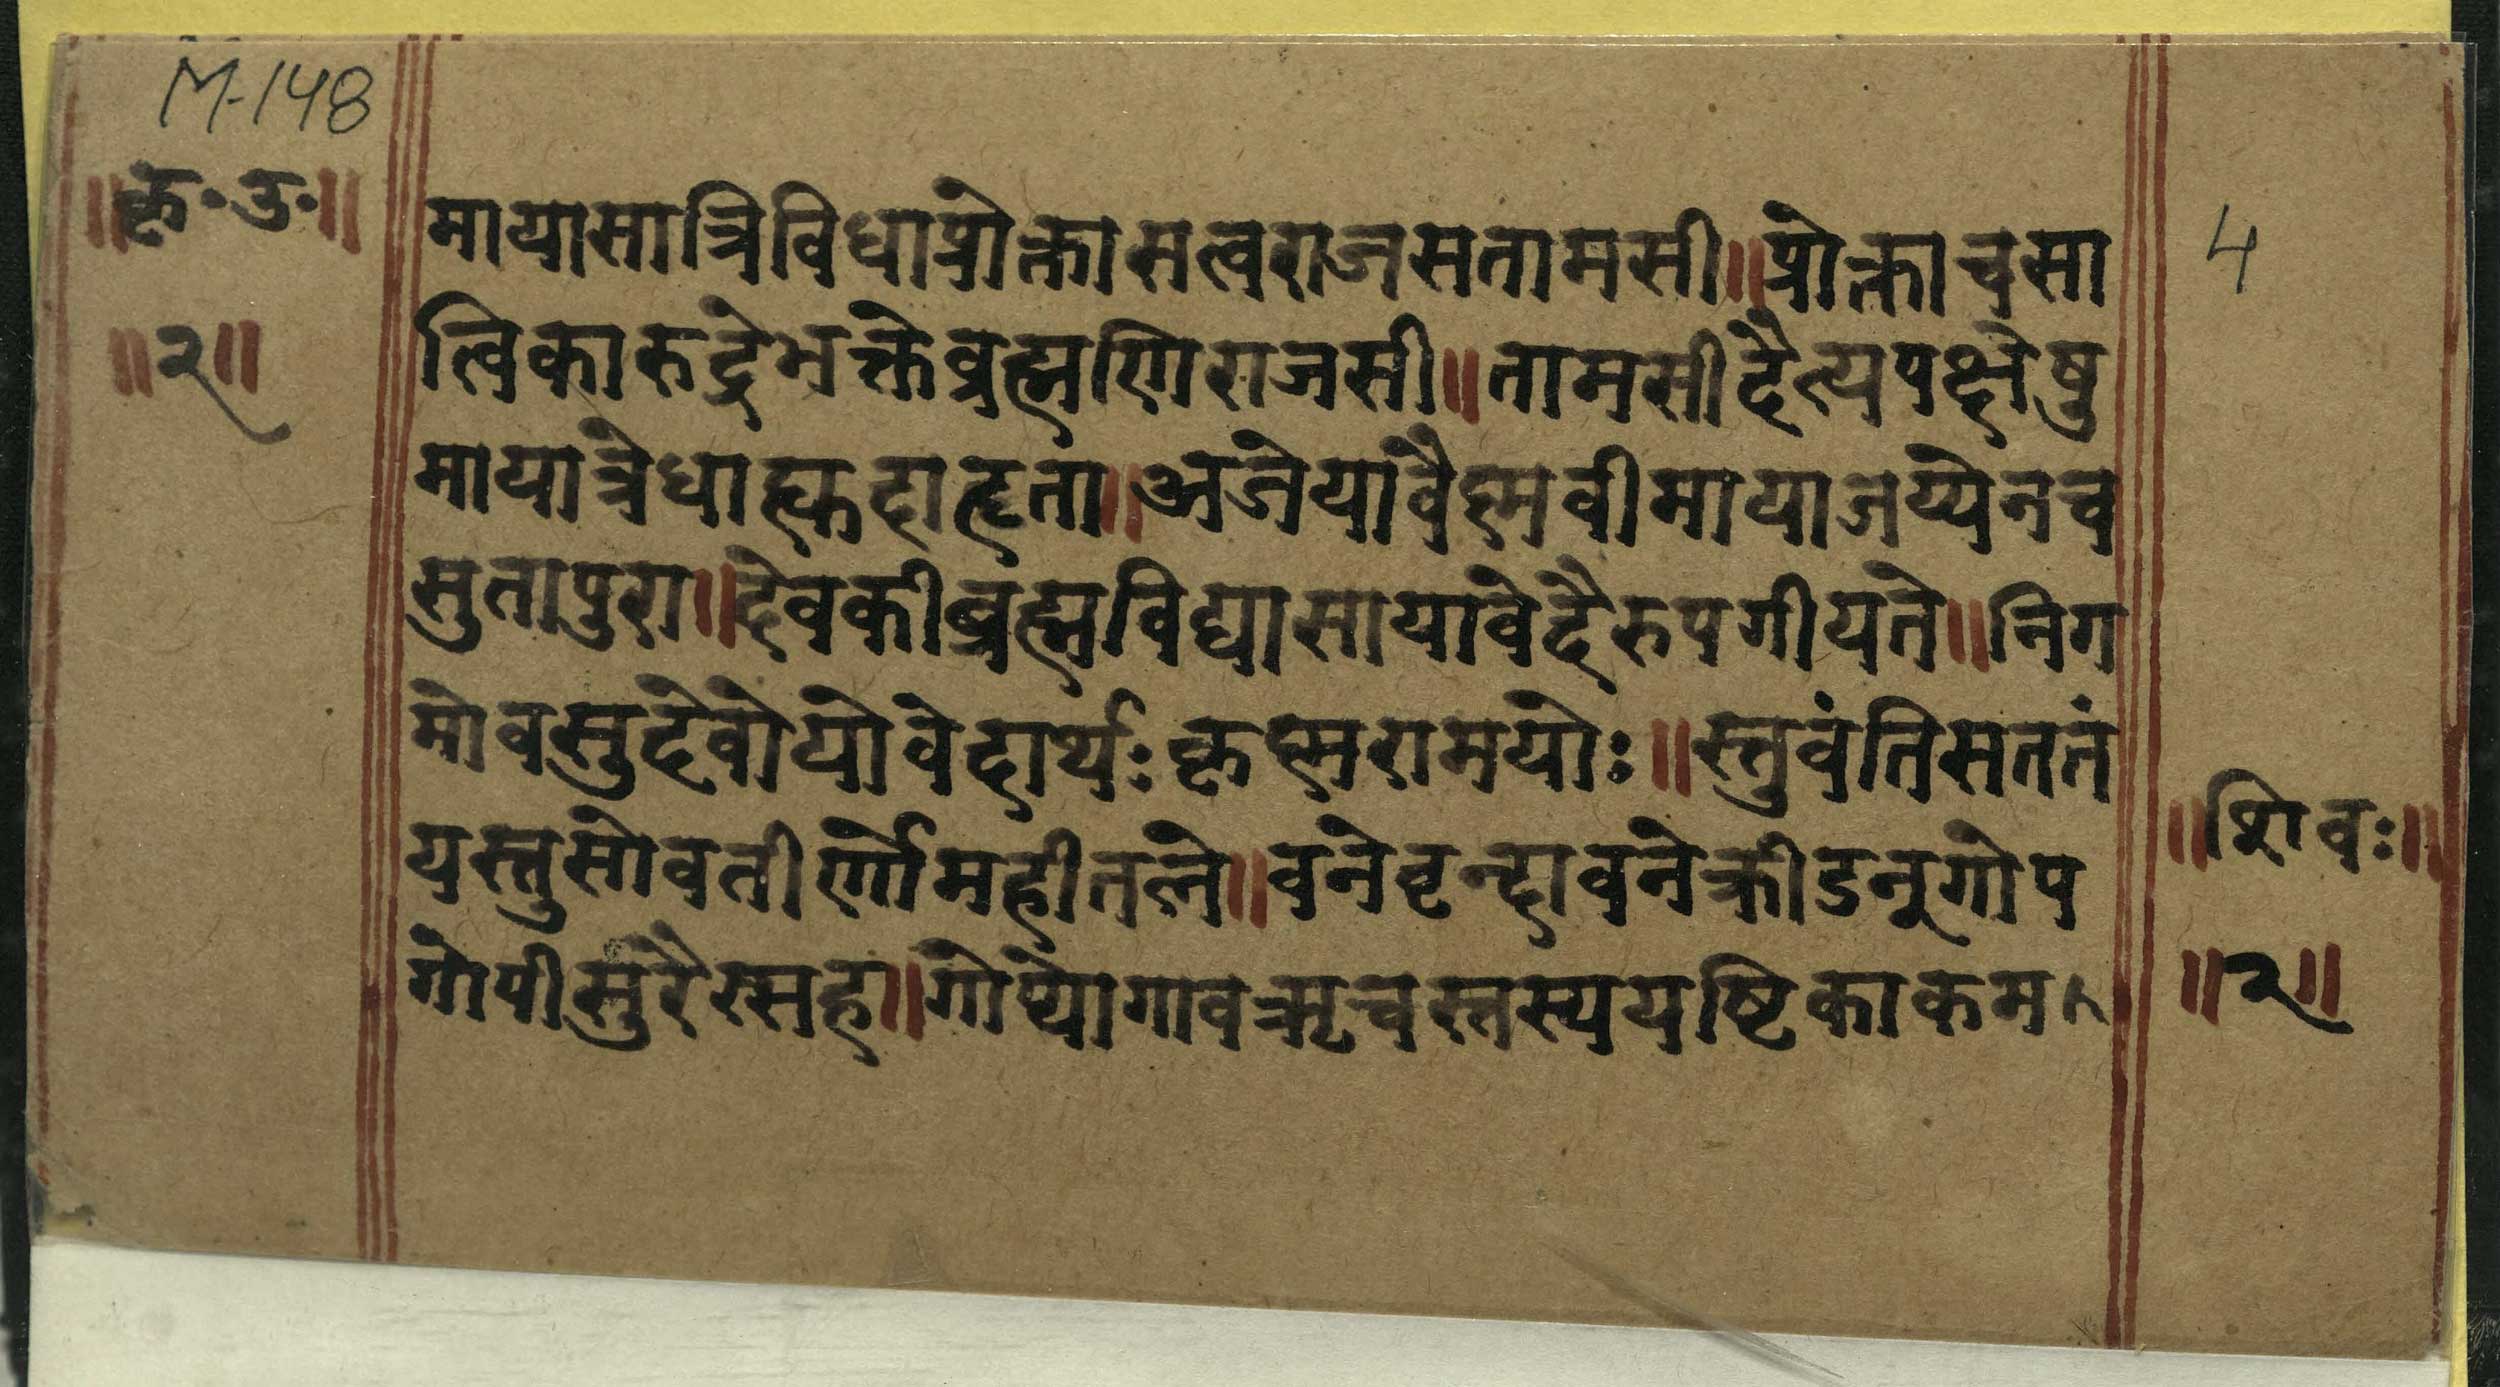 M-148
॥कृ॰उ॰॥
॥२॥
मायासात्रिविधाप्रोक्तासत्वराजसतामसी॥प्रोक्ताचसा
4
त्विकारुद्रेभक्तेब्रह्मणिराजसी॥तामसीदैत्यपक्षेषु
मायात्रेधाह्युदाहृता॥अजेयावैष्णवीमायाजय्येनच
सुतापुरा॥देवकीब्रह्मविद्यासायावेदैरुपगीयते॥निग
मोवसुदेवोयोवेदार्थःकृष्णरामयोः॥स्तुवंतिसततं
यस्तुसोवतीर्णोमहीतले॥वनेवृन्दावनेक्रीडन्गोप
गोपीसुरैस्सह॥गोप्योगावऋचस्तस्ययष्टिकाकम
॥शिवः॥
॥२॥